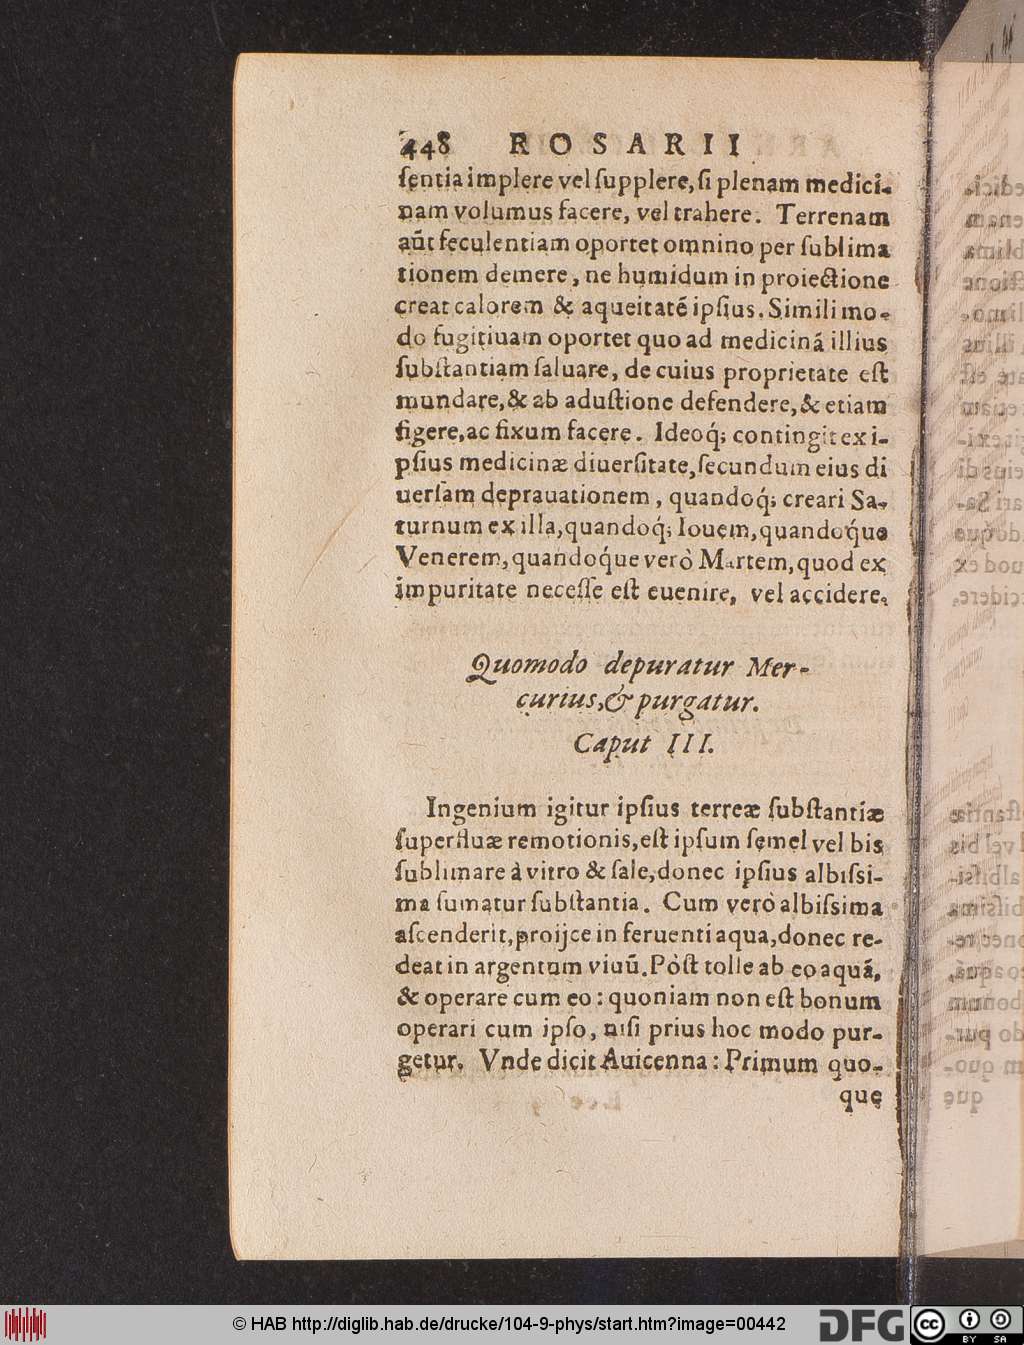 448 ROSARII
sentia implere vel supplere, si plenam medici-
nam volumus facere, vel trahere. Terrenam
aūt feculentiam oportet omnino per sublima
tionem demere, ne humidum in proiectione
creat calorem & aqueitatē ipsius. Simili mo-
do fugitiuam oportet quo ad medicinā illius
substantiam saluare, de cuius proprietate est
mundare, & ab adustione defendere, & etiam
figere, ac fixum facere. Ideoq́; contingit ex i-
psius medicinæ diuersitate, secundum eius di
uersam deprauationem, quandoq́; creari Sa-
turnum ex illa, quandoq́; Iouem, quandoq́ue
Venerem, quandoq́ue verò Martem, quod ex
impuritate necesse est euenire, vel accidere.
Quomodo depuratur Mer-
curius, & purgatur.
Caput III.
Ingenium igitur ipsius terreæ substantiæ
superfluæ remotionis, est ipsum semel vel bis
sublimare à vitro & sale, donec ipsius albissi-
ma sumatur substantia. Cum verò albissima
ascenderit, proijce in feruenti aqua, donec re-
deat in argentum viuū. Pòst tolle ab eo aquā,
& operare cum eo: quoniam non est bonum
operari cum ipso, nisi prius hoc modo pur-
getur. Vnde dicit Auicenna: Primum quo-
que
© HAB http://diglib.hab.de/drucke/104-9-phys/start.htm?image=00442
DFG
cc
BY SA